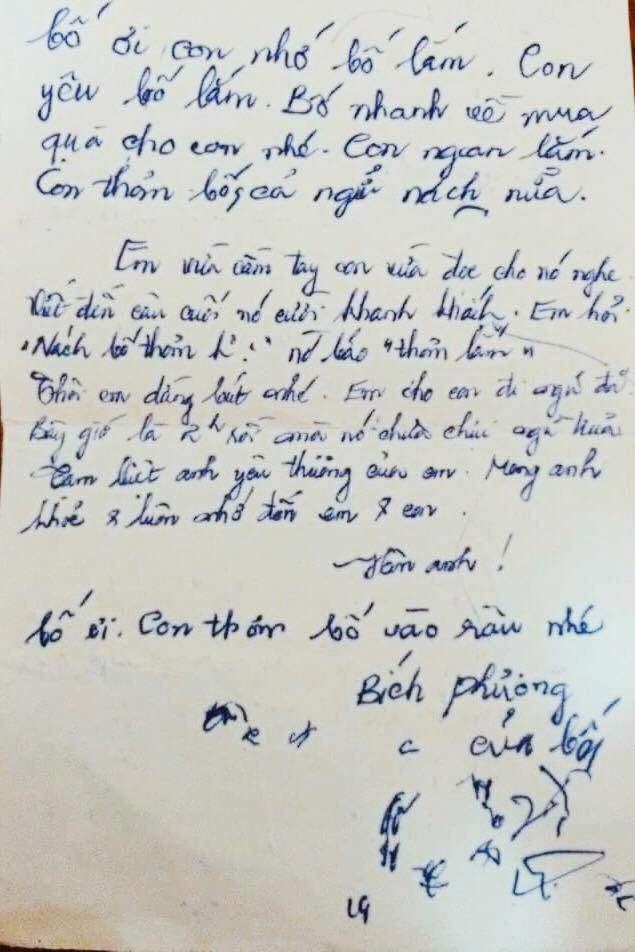 bố ơi con nhớ bố lắm. Con
yêu bố lắm. Bố nhanh về mua
quà cho con nhé. Con ngoan lắm.
Con thơm bố, cả ngửi nách nữa.
Em vừa cầm tay con vừa đọc cho nó nghe
Viết đến câu cuối nó cười khanh khách. Em hỏi
"Nách bố thơm k?" nó bảo "thơm lắm"
Thôi em dừng bút nhé. Em cho con đi ngủ đã
Bây giờ là 2h rồi mà nó chưa chịu ngủ trưa
Tạm biệt anh yêu thương của em. Mong anh
khoẻ & luôn nhớ đến em & con.
Hôn anh!
bố ơi. Con thơm bố vào râu nhé
Bích Phượng
của bố